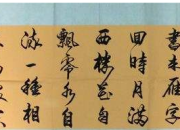 書來雁字
回時月滿
西樓花自
飄零水自
流一種相